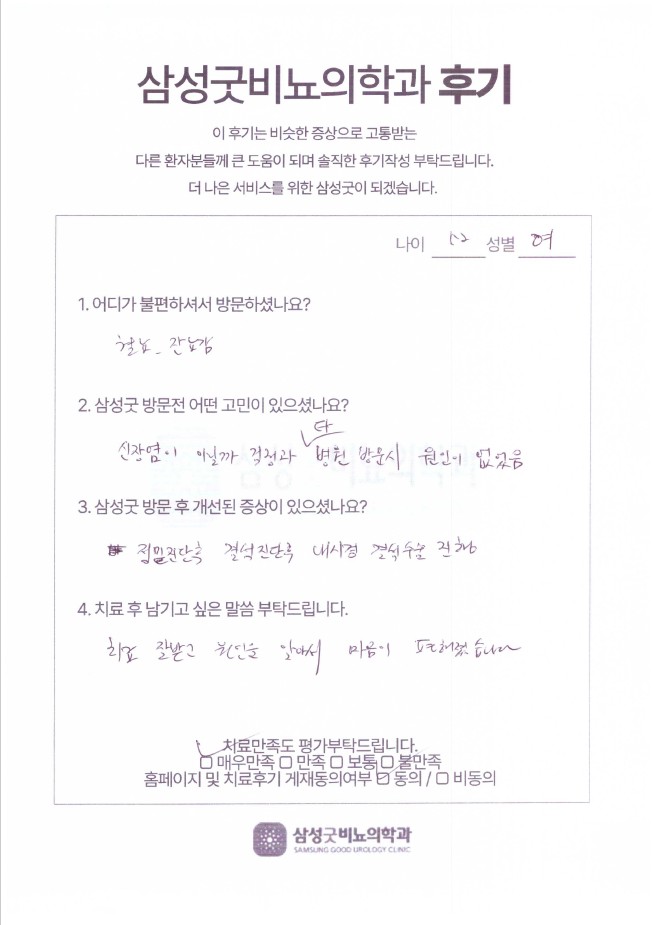 삼성굿비뇨의학과 후기
이 후기는 비슷한 증상으로 고통받는
다른 환자분들께 큰 도움이 되며 솔직한 후기작성 부탁드립니다.
더 나은 서비스를 위한 삼성굿이 되겠습니다.
나이 52 성별 여
1. 어디가 불편하셔서 방문하셨나요?
혈뇨_ 잔뇨감
2. 삼성굿 방문전 어떤 고민이 있으셨나요?
타
신장염이 아닐까 걱정과 병원 방문시 원인이 없었음
3. 삼성굿 방문 후 개선된 증상이 있으셨나요?
정밀진단후 결석진단후 내시경 결석수술 진행
4. 치료 후 남기고 싶은 말씀 부탁드립니다.
치료 잘받고 원인을 알아서 마음이 편해졌습니다
처료만족도 평가부탁드립니다.
매우만족 만족 보통 불만족
홈페이지 및 치료후기 게재동의여부 동의 / 비동의
삼성굿비뇨의학과
SAMSUNG GOOD UROLOGY CLINIC